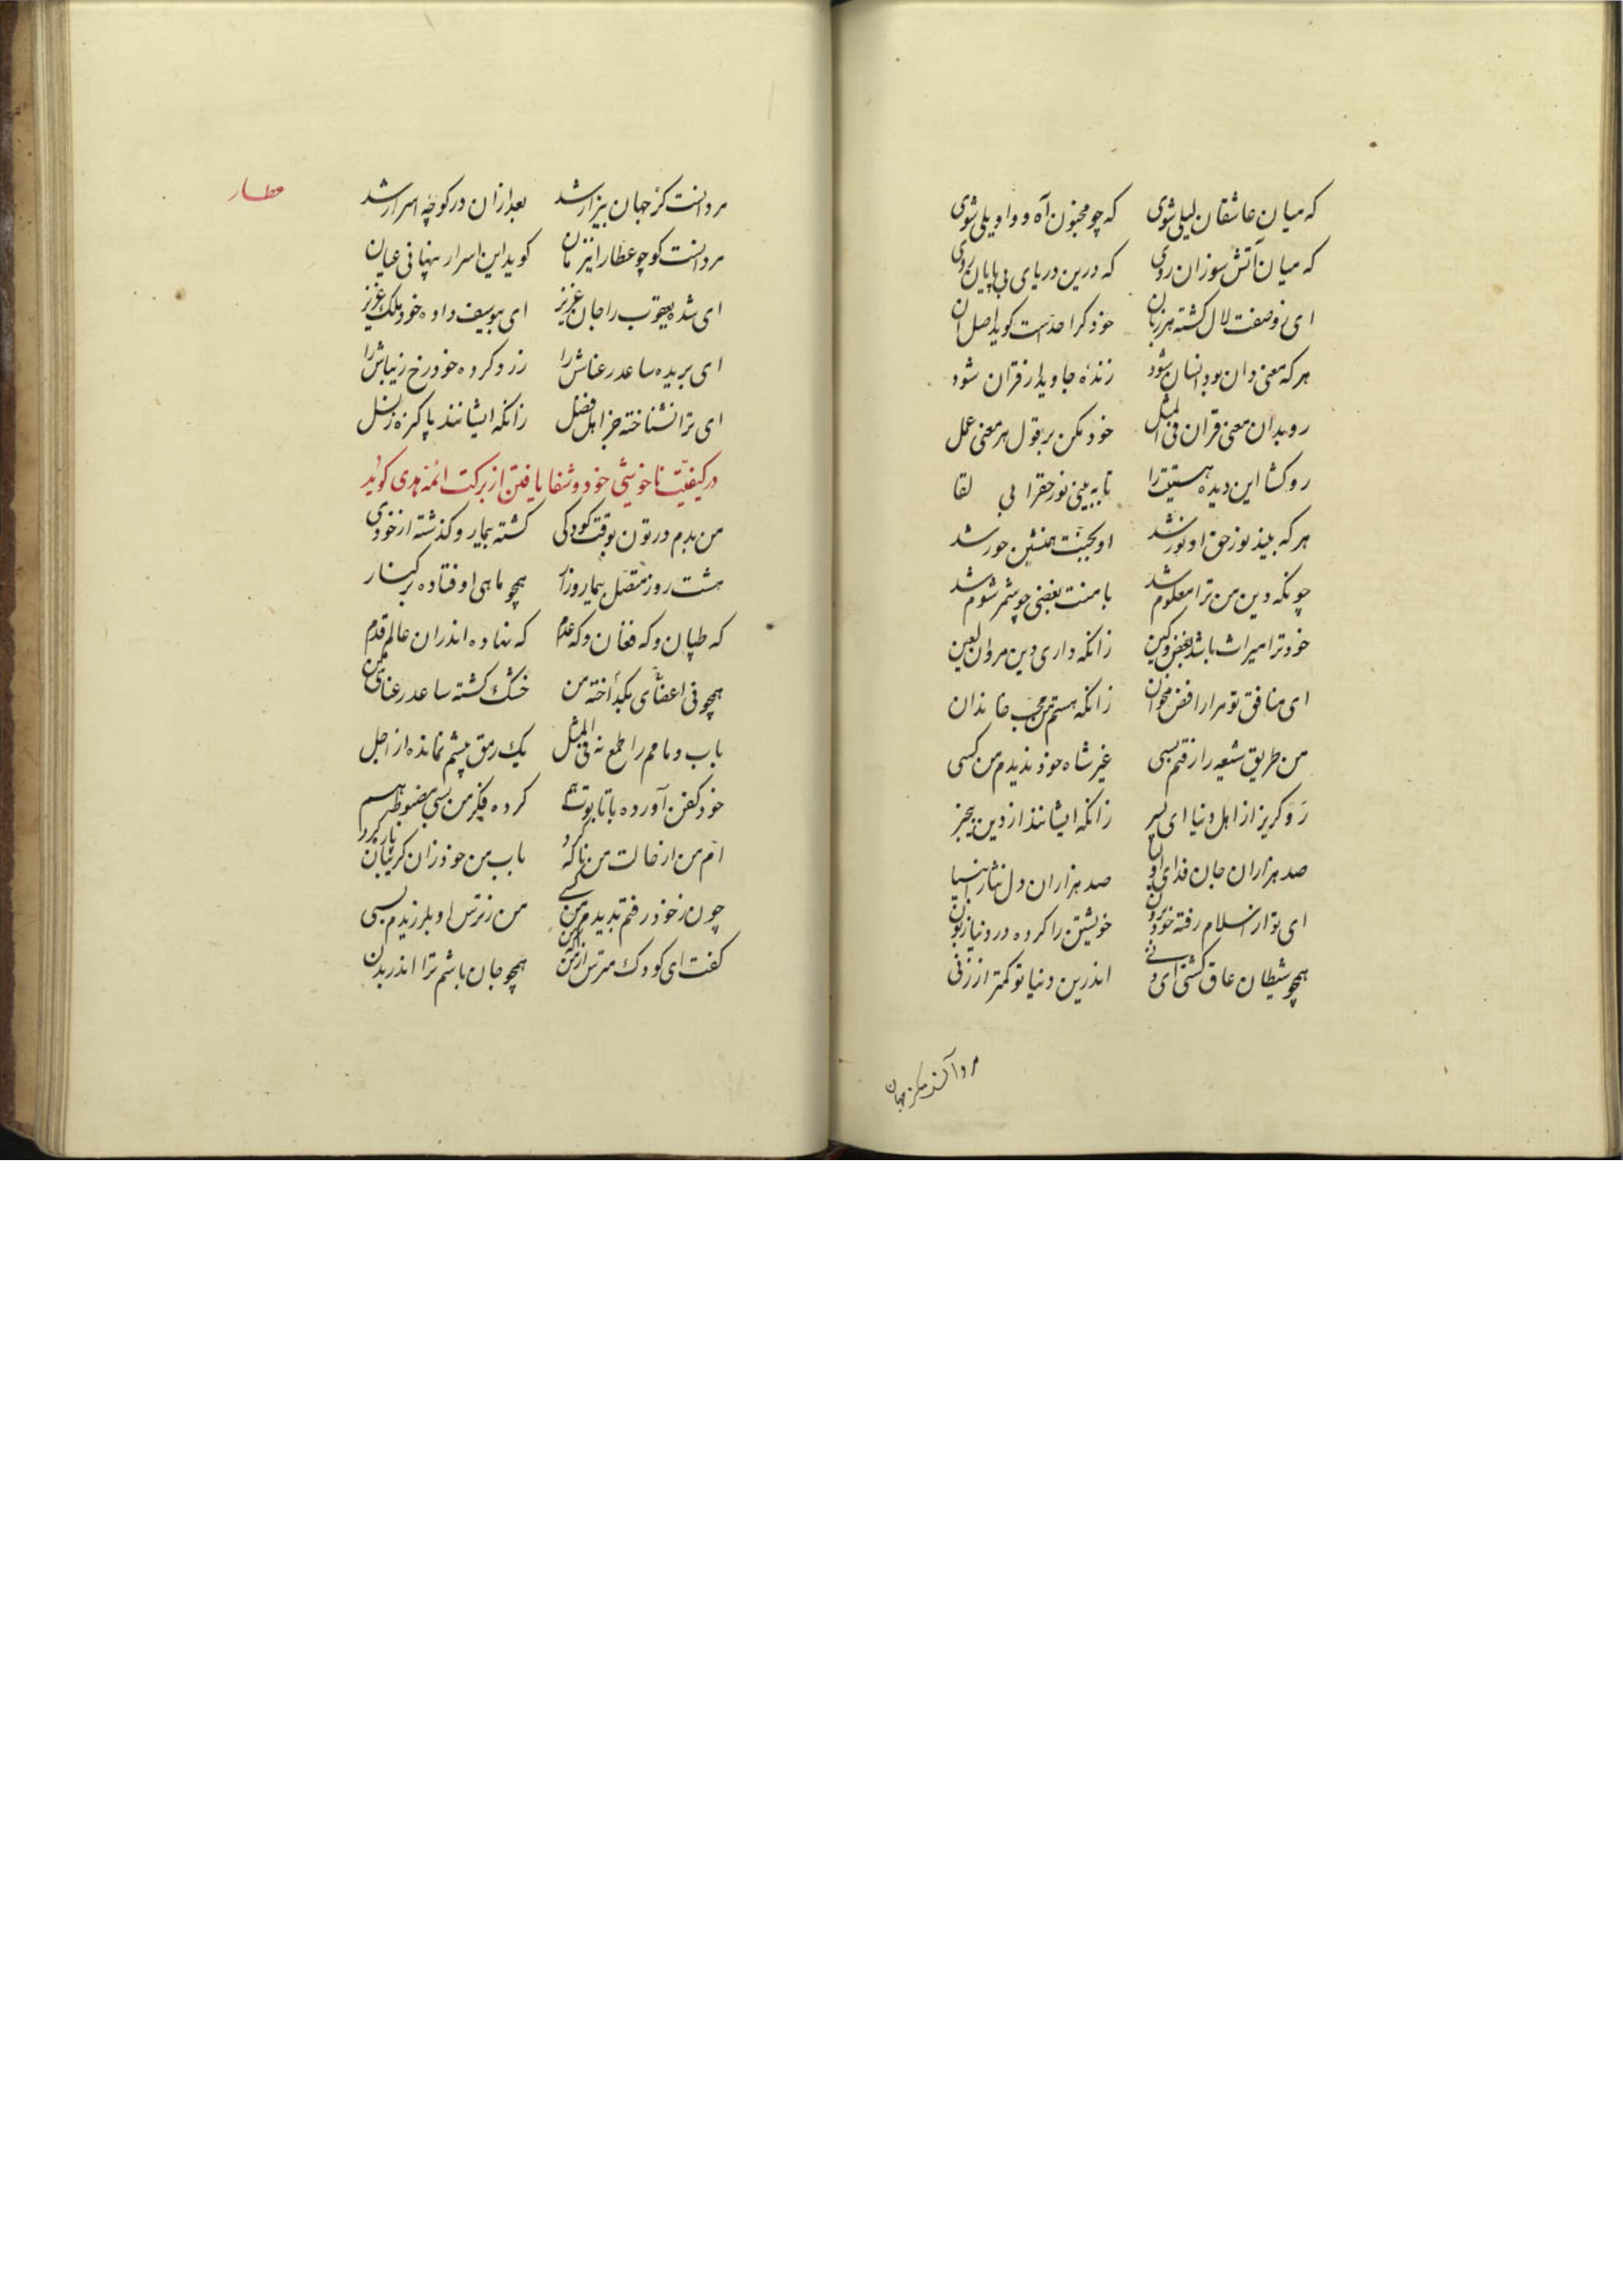 که میان عاشقان لیلی شوی که چو مجنون آه و واویلی شوی
که میان آتش سوزان روی که درین دریای بی پایان روی
ای ز وصفت لال کشته هر زبان خود کرا حدّست کوید اصل آن
هر که معنی دان بود انسان شود زندهٔ جاوید از قران شود
رو بدان معنی قران فی المثل خود مکن بر قول هر معنی عمل
رو کشا این دیده هستیت را تا به بینی نور حقرا بی لقا
هر که بیند نور حق او نور شد او بجنّت همنشین حور شد
چونکه دین من ترا معلوم شد با منت بغضی چو شمر شوم شد
خود ترا میراث باشد بغض و کین زانکه داری دین مروان لعین
ای منافق تو مرا رافض مخوان زانکه هستم من محب خاندان
من طریق شیعه را رفتم بسی غیر شاه خود ندیدم من کسی
رَو کریز از اهل دنیا ای پسر زانکه ایشانند از دین بیخبر
صد هزاران جان فدای اولیا صد هزاران دل نثار انبیا
ای تو از اسلام رفته خود برون خویشتن را کرده در دنیا زبون
همچو شیطان عاق کشتی ای دنی اندرین دنیا تو کمتر از زنی
مرد آنست کز جهان
عطار
مرد انست کز جهان بیزار شد بعد ازان در کوچهٔ اسرار شد
مرد انست کو چو عطار انزمان کوید این اسرار پنهانی عیان
ای شده یعقوب را جان عزیز ای بیوسف داده خود ملک عزیز
ای بریده ساعد رعناش را زرد کرده خود رخ زیباش را
ای ترا نشناخته جز اهل فضل زانکه ایشانند پاکیزه ز نسل
در کیفیّت ناخوشی خود و شفا یافتن از برکت ائمه هدی کوید
من بدم در تون بوقت کودکی کشته بیمار و کذشته از خودی
هشت روز متصل بیمار وزار همچو ماهی اوفتاده بر کنار
که طپان و که فغان و که عدم که نهاده اندران عالم قدم
همچو نی اعضای بکداخته من خشک کشته ساعد رعنای من
باب و مامم را طمع نه فی المثل یک رمق پیشم نمانده از اجل
خود کفن آورده با تابوت هم کرده فکر من بسی مضبوط هم
امّ من از خالت من ناله کرد باب من خود زان کریبان پاره کرد
چون ز خود رفتم بدیدم من کسی من ز ترس او بلرزیدم بسی
کفت ای کودک مترس از من که من همچو جان باشم ترا اندر بدن